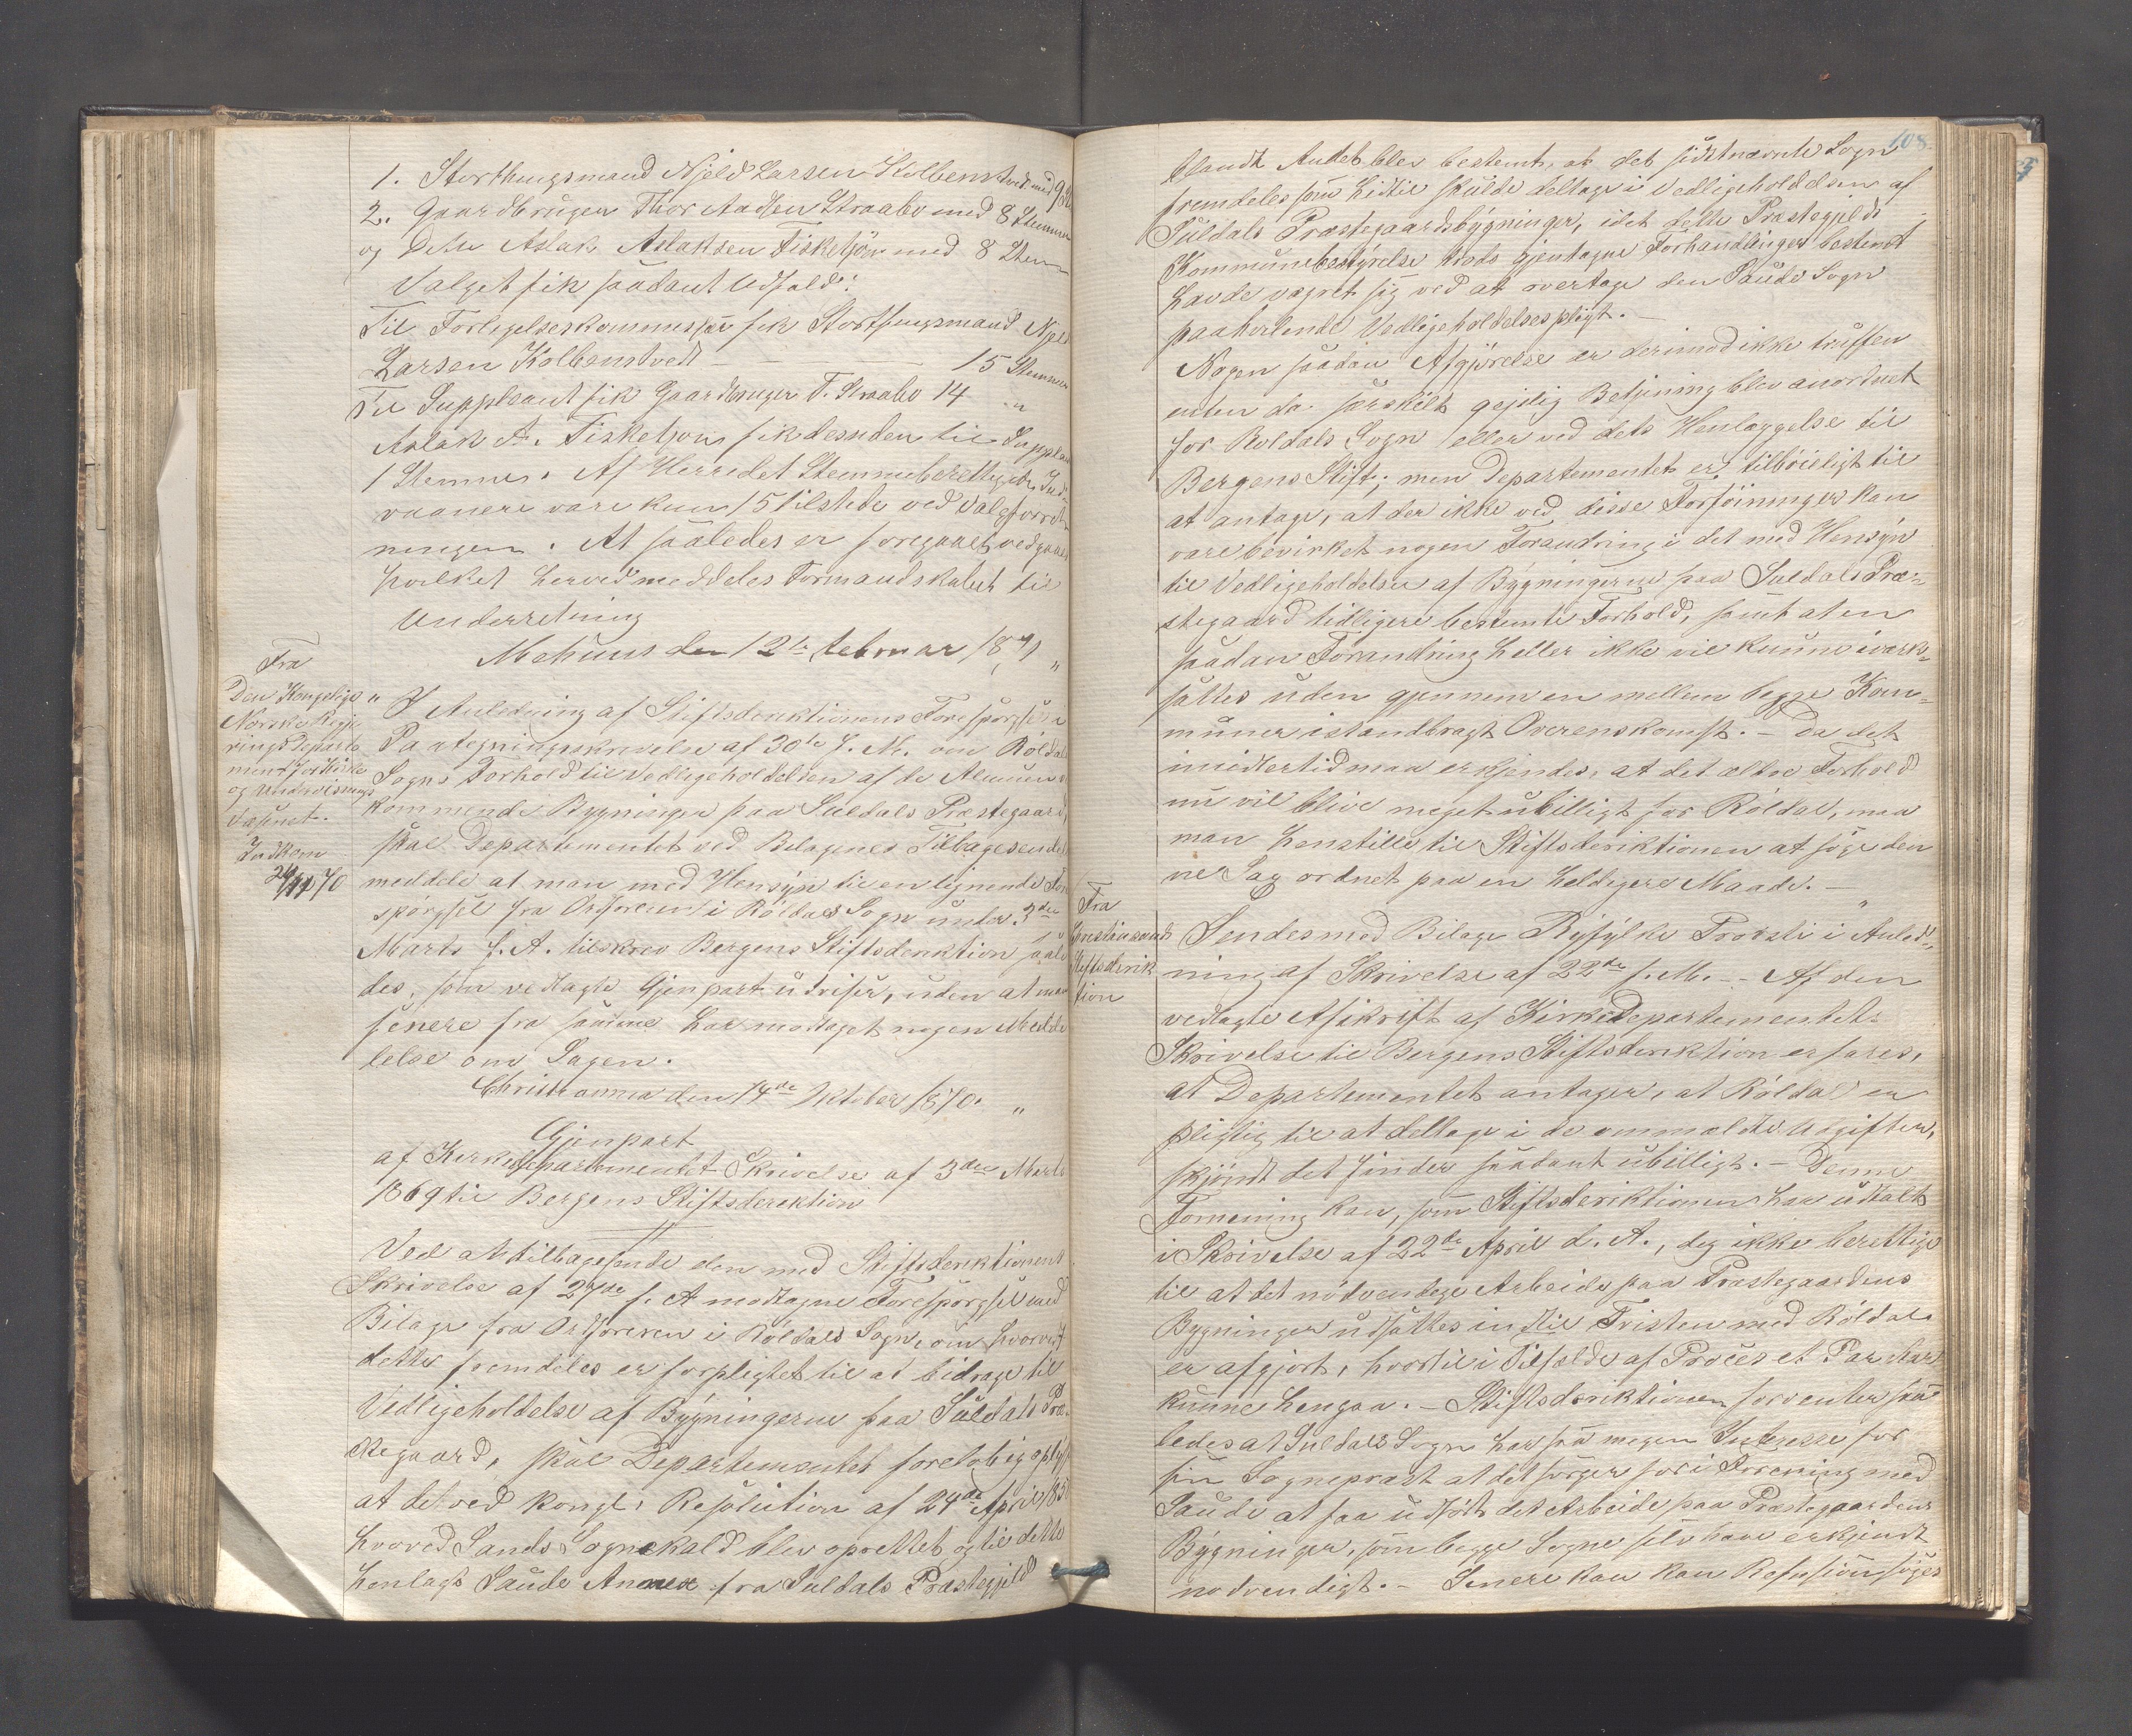 1. Storthingsmand Njeld Larsen Kolbenstvedt med 9 St
2. Gaardbruger Thor Aadsen Straabø med 8 Stemmer
og Ditto Aslak Aslaksen Fisketjøn med 8 Stem
Valget fik saadant Udfald:
Til Forligelseskommissær fik Storthingsmand Njeld
Larsen Kolbenstvedt — — 15 Stemmer
Til Suppleant fik Gaardbruger T. Straabø 14 "
Aslak A. Fisketjøn fik desuden til Supplea
1 Stemme. Af Herredet Stemmeberettigede Ind-
vaanere vare kun 15 tilstede ved Valgforret-
ningen. At saaledes er foregaaet vedgaaes
hvilket herved meddeles Formandskabet til
Underretning
Mehuus den 12te Februar 1871 "
Fra
Den Kongelige
Norske Regje
rings Departe
ment for Kirke
og Undervisnings
Væsenet.
Indkom
26/11 70
" I Anledning af Stiftsdirektionens Forespørgsel i
Paategningsskrivelse af 30te f. M. om Röldals
Sogns Forhold til Vedligeholdelsen af de Almuen ved
kommende Bygninger paa Suldals Præstegaard,
skal Departementet ved Bilagenes Tilbagesendelse
meddele at man med Hensyn til en lignende Fore
spørgsel fra Ordføreren i Röldals Sogn under 3die
Marts f. A. tilskrev Bergens Stiftsdirektion saale
des, som vedlagte Gjenpart udviser, uden at man
senere fra samme har modtaget nogen Medde
lelse om Sagen.
Christiania den 14de Oktober 1870. "
Gjenpart
af Kirkedepartementet Skrivelse af 3die Marts
1869 til Bergens Stiftsdirektion
Ved at tilbagesende den med Stiftsdirektionens
Skrivelse af 29de f. A modtagne Forespørgsel med
Bilage fra Ordføreren i Röldals Sogn, om hvorvidt
dette fremdeles er forpligtet til at bidrage til
Vedligeholdelse af Bygningerne paa Suldals Præ-
stegaard, skal Departementet foreløbig oplyse
at det ved Kongl. Resolution af 24de April 185
hvorved Sands Sognekald blev oprettet og til dette
henlagt Saude Annex fra Suldals Præstegjeld
108.
blandt Andet blev bestemt, at det sidstnævnte Sogn
fremdeles som hidtil skulde deltage i Vedligeholdelsen af
Suldals Præstegaardsbygninger, idet dette Præstegjelds
Kommunebestyrelse trods gjentagne Forhandlinger bestemt
havde vægret sig ved at overtage den Saude Sogn
paahvilende Vedligeholdelsespligt. —
Nogen saadan Afgjörelse er derimod ikke truffen
enten da særskilt gejstlig Betjening blev anordnet
for Roldals Sogn eller ved dets Henlæggelse til
Bergens Stift; men Departementet er tilböieligt til
at antage, at der ikke ved disse Forföininger kan
være bevirket nogen Forandring i det med Hensyn
til Vedligeholdelsen af Bygningerne paa Suldals Præ-
stegaard tidligere bestemte Forhold, samt at en
saadan Forandring heller ikke vil kunne iværk-
sættes uden gjennem en mellem begge Kom-
muner istandbragt Overenskomst. — Da det
imidlertid maa erkjendes, at det ældre Forhold
nu vil blive meget ubilligt for Röldal, maa
man henstille til Stiftsdirektionen at söge den
ne Sag ordnet paa en heldigere Maade. — "
Fra
Christiansands
Stiftsdirek
tion
Sendes med Bilage Ryfylke Provsti i Anled-
ning af Skrivelse af 22de f. M. — Af den
vedlagte Afskrift af Kirkedepartementets
Skrivelse til Bergens Stiftsdirektion erfares,
at Departementet antager, at Röldal er
pligtig til at deltage i de ommeldte Udgifter,
skjöndt det finder saadant ubilligt. — Denne
Formening kan, som Stiftsdirektionen har udtalt
i Skrivelse af 22de April d. A., dog ikke berettige
til at det nödvendige Arbeide paa Præstegaardens
Bygninger udsættes indtil Tvisten med Röldal
er afgjort, hvortil i Tilfælde af Proces et Par Aar
kunne hengaa. — Stiftsdirektionen forventer saa
ledes at Suldals Sogn har saa megen Interesse for
sin Sognepræst at det sörger for i Forening med
Saude at faa udfört det Arbeide paa Præstegaardens
Bygninger, som begge Sogne selv have erkjendt
nødvendigt. — Senere kan kan Refusion söges